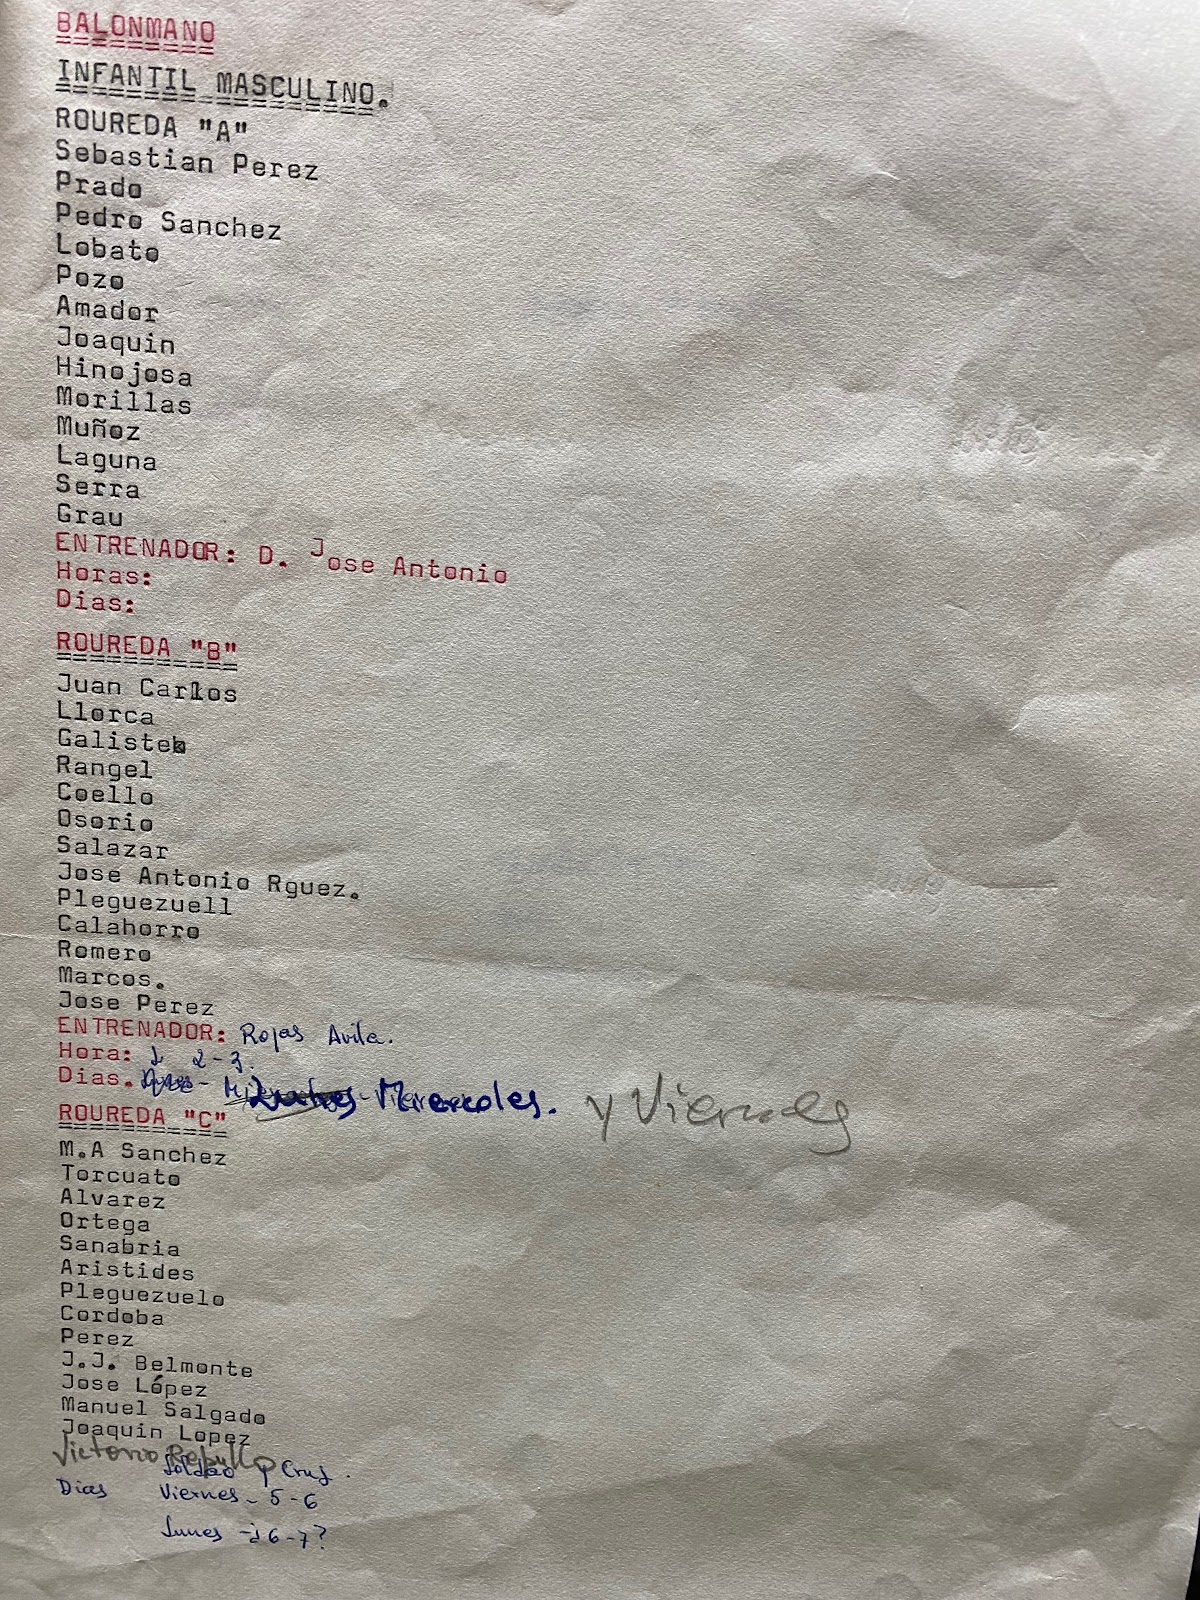 BALONMANO
INFANTIL MASCULINO.
ROUREDA "A"
Sebastian Perez
Prado
Pedro Sanchez
Lobato
Pozo
Amador
Joaquin
Hinojosa
Morillas
Muñoz
Laguna
Serra
Grau
ENTRENADOR: D. Jose Antonio
Horas:
Dias:
ROUREDA "B"
Juan Carlos
Llorca
Galisteo
Rangel
Coello
Osorio
Salazar
Jose Antonio Rguez.
Pleguezuell
Calahorro
Romero
Marcos.
Jose Perez
ENTRENADOR: Rojas Avila.
Hora: 2-3.
Dias. Miercoles. y Viernes
ROUREDA "C"
M.A Sanchez
Torcuato
Alvarez
Ortega
Sanabria
Aristides
Pleguezuelo
Cordoba
Perez
J.J. Belmonte
Jose López
Manuel Salgado
Joaquin Lopez
Victorio Repullo
y Cruz.
Dias Viernes - 5-6
Lunes - 6-7?